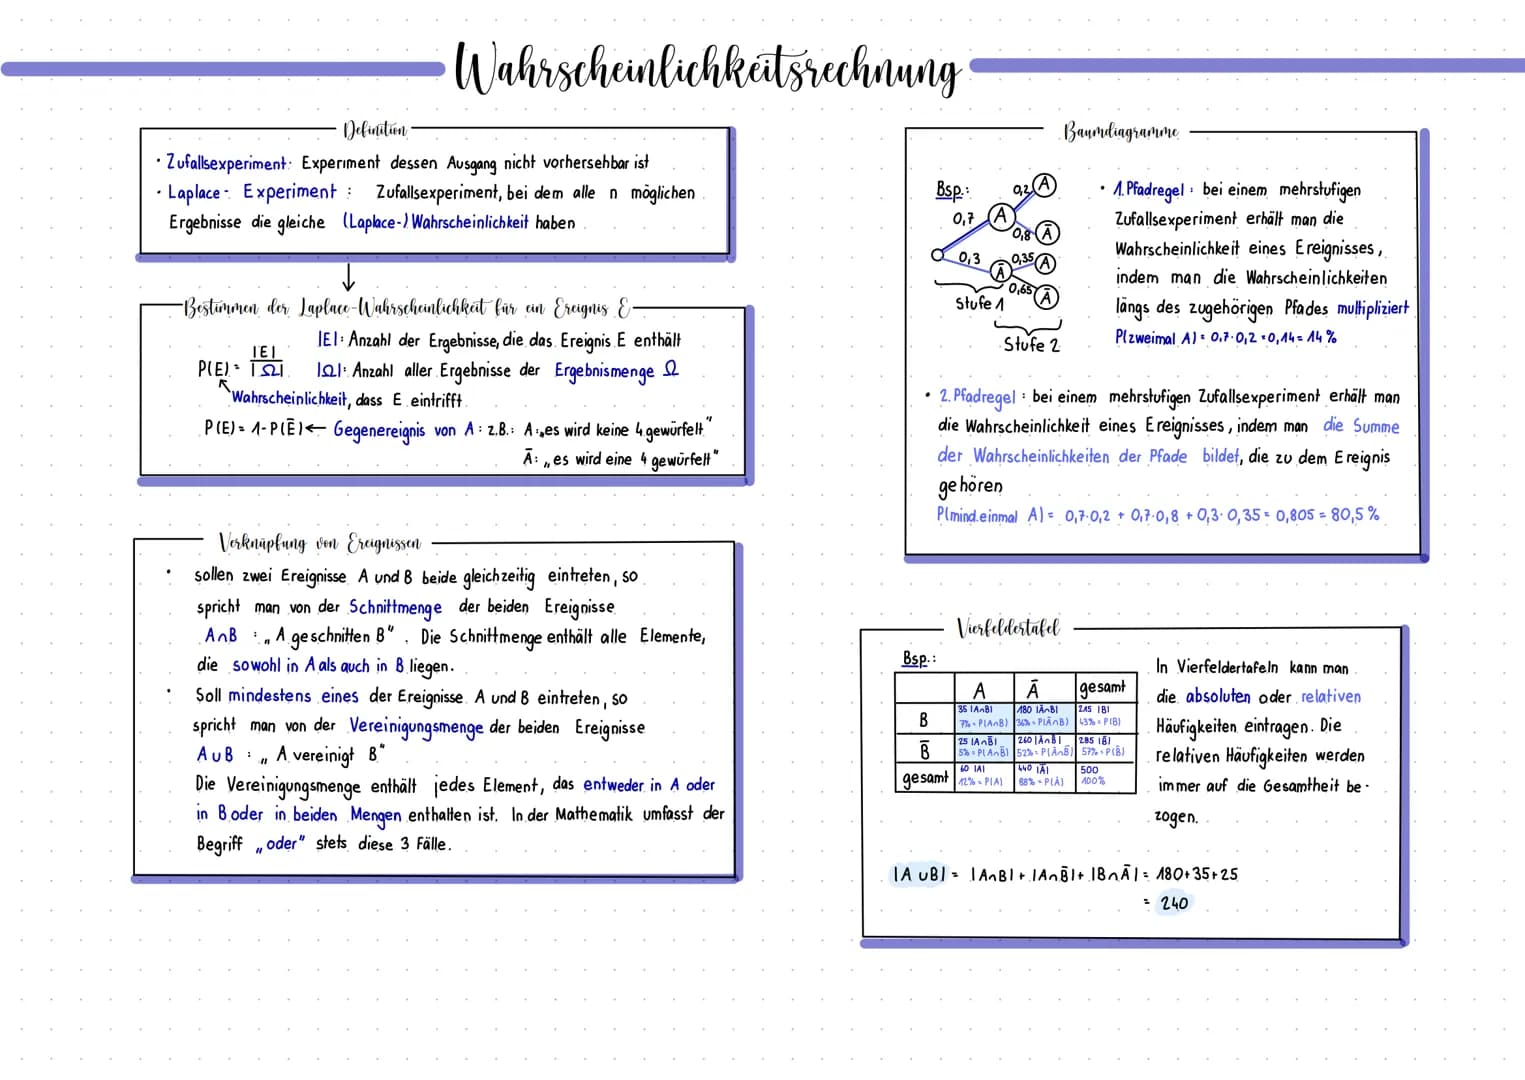 Wahrscheinlichkeitsrechnung
Definition
· Zufallsexperiment: Experiment dessen Ausgang nicht vorhersehbar ist
· Laplace- Experiment : Zufallsexperiment, bei dem alle n möglichen
Ergebnisse die gleiche (Laplace-) Wahrscheinlichkeit haben
Bestimmen der Laplace-Wahrscheinlichkeit für ein Ereignis E
|E|: Anzahl der Ergebnisse, die das Ereignis E enthält
P(E) = |E| / |Ω| |Ω|: Anzahl aller Ergebnisse der Ergebnismenge Ω
Wahrscheinlichkeit, dass E eintrifft
P(E) = 1-P(Ē) ← Gegenereignis von A : z.B.: A:„es wird keine 4 gewürfelt"
Ā: „es wird eine 4 gewürfelt"
Verknüpfung von Ereignissen
· sollen zwei Ereignisse A und B beide gleichzeitig eintreten, so
spricht man von der Schnittmenge der beiden Ereignisse
A∩B : „A geschnitten B". Die Schnittmenge enthält alle Elemente,
die sowohl in A als auch in B liegen.
· Soll mindestens eines der Ereignisse A und B eintreten, so
spricht man von der Vereinigungsmenge der beiden Ereignisse
A∪B : „A vereinigt B"
Die Vereinigungsmenge enthält jedes Element, das entweder in A oder
in B oder in beiden Mengen enthalten ist. In der Mathematik umfasst der
Begriff „oder" stets diese 3 Fälle.
Baumdiagramme
Bsp.:
0,2 A
0,7 A
0,8 Ā
0,3 Ā
0,35 A
0,65 Ā
Stufe 1
Stufe 2
· 1. Pfadregel : bei einem mehrstufigen
Zufallsexperiment erhält man die
Wahrscheinlichkeit eines Ereignisses,
indem man die Wahrscheinlichkeiten
längs des zugehörigen Pfades multipliziert
P(zweimal A) = 0,7·0,2 = 0,14 = 14 %
· 2. Pfadregel : bei einem mehrstufigen Zufallsexperiment erhält man
die Wahrscheinlichkeit eines Ereignisses, indem man die Summe
der Wahrscheinlichkeiten der Pfade bildet, die zu dem Ereignis
gehören
P(mind. einmal A) = 0,7·0,2 + 0,7·0,8 + 0,3·0,35 = 0,805 = 80,5 %
Vierfeldertafel
Bsp.:
A Ā gesamt
B 35 |A∩B| 180 |Ā∩B| 215 |B|
7% = P(A∩B) 36% = P(Ā∩B) 43% = P(B)
B̄ 25 |A∩B̄| 260 |Ā∩B̄| 285 |B̄|
5% = P(A∩B̄) 52% = P(Ā∩B̄) 57% = P(B̄)
gesamt 60 |A| 440 |Ā| 500
12% = P(A) 88% = P(Ā) 100%
In Vierfeldertafeln kann man
die absoluten oder relativen
Häufigkeiten eintragen. Die
relativen Häufigkeiten werden
immer auf die Gesamtheit be-
zogen.
|A∪B| = |A∩B| + |A∩B̄| + |B∩Ā| = 180+35+25
= 240